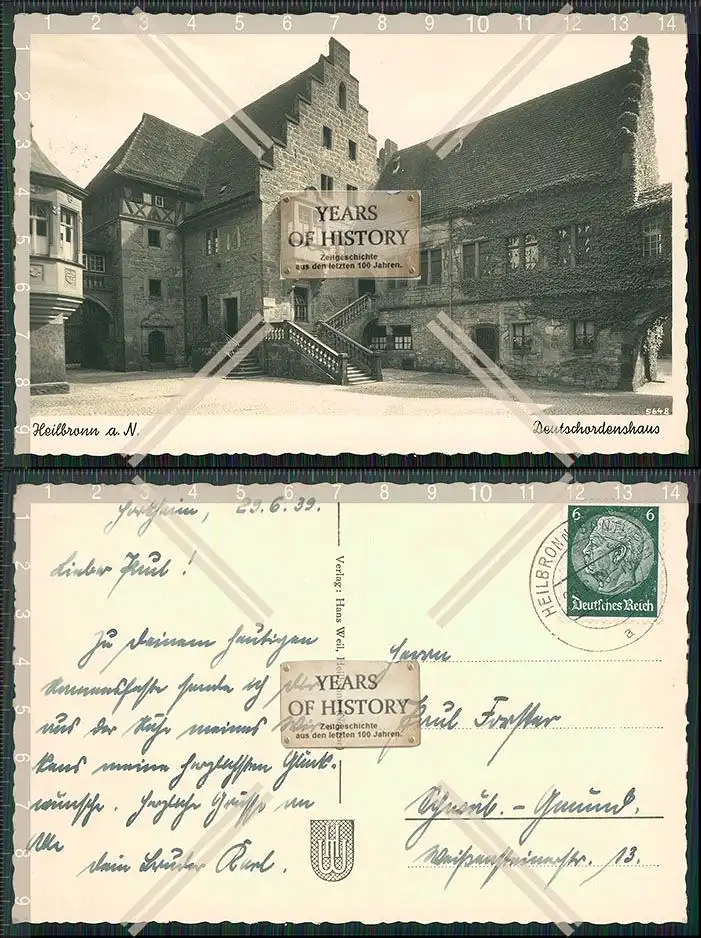 YEARS
OF HISTORY
Zeitgeschichte
aus den letzten 100 Jahren.
5648
Heilbronn a. N.
Deutschordenshaus
Hortheim, 29.6.39.
Lieber Paul!
Zu Deinem heutigen
Namensfeste sende ich Dir
aus der Nähe meines Wir
kens meine herzlichsten Glück-
wünsche. Herzliche Grüsse an
Alle
Dein Bruder Karl.
Verlag: Hans Weil,
YEARS
OF HISTORY
Zeitgeschichte
aus den letzten 100 Jahren.
6 6
Deutsches Reich
HEILBRONN
a
Herrn
Paul Forster
Schwäb.-Gmünd.
Weißensteinerstr. 13.